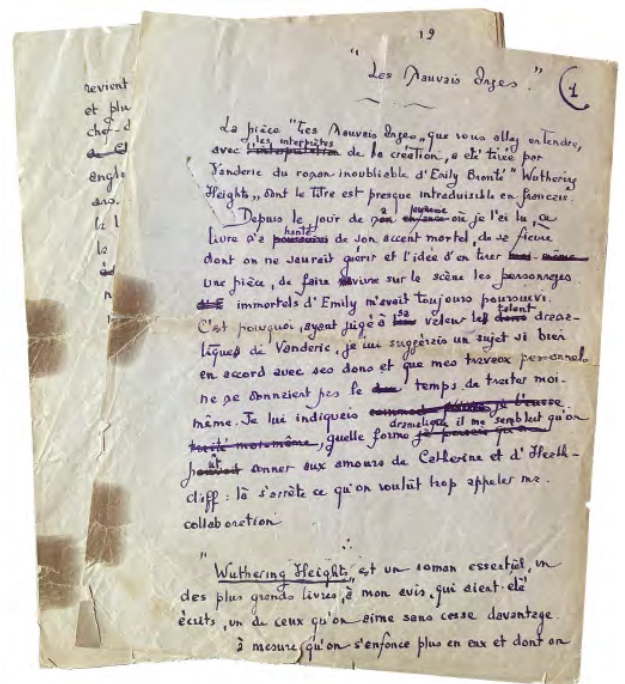 revient
et plu
chef-d
anglo
ans.
la l
la
n
19
"Les Mauvais Anges."
1
La pièce "Les Mauvais Anges, que vous allez entendre,
les interprètes
avec l'interprétation de la création, a été tirée par
Vanderic du roman inoubliable d'Emily Brontë "Wuthering
Heights", dont le titre est presque intraduisible en français.
jeunesse
Depuis le jour de enfance où je l'ai lu, ce
hanté
livre m'a poursuivi de son accent mortel, de sa fièvre
dont on ne saurait guérir et l'idée d'en tirer moi-même
une pièce, de faire vivre sur la scène les personnages
immortels d'Emily m'avait toujours poursuivi.
sa talent
C'est pourquoi, ayant jugé à valeur les dons drama-
tiques de Vanderic, je lui suggérais un sujet si bien
en accord avec ses dons et que mes travaux personnels
ne me donnaient pas le temps de traiter moi-
même. Je lui indiquais
dramatique il me semblait qu'on
traité moi-même, quelle forme je pensais qu'on
pouvait donner aux amours de Catherine et d'Heath-
cliff : là s'arrête ce qu'on voulût trop appeler ma
collaboration
"Wuthering Heights, est un roman essentiel, un
des plus grands livres, à mon avis, qui aient été
écrits, un de ceux qu'on aime sans cesse davantage
à mesure qu'on s'enfonce plus en eux et dont on